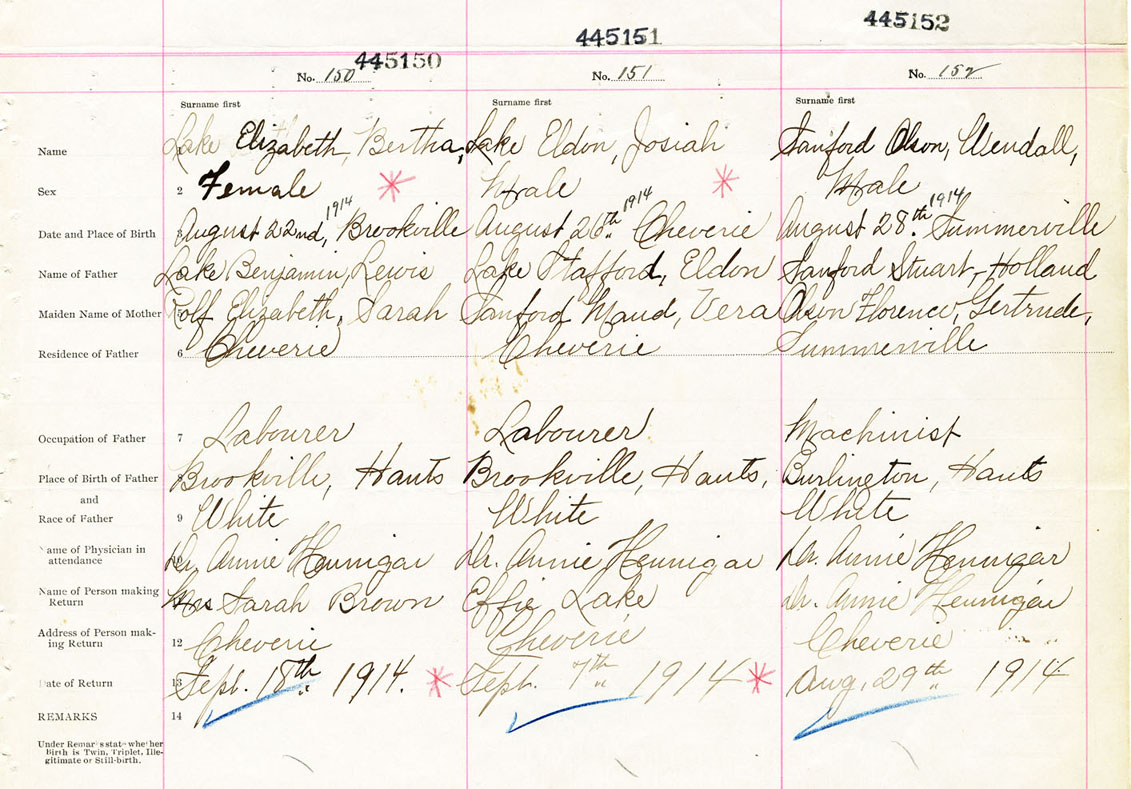 445150 445151 445152
No. 150 No. 151 No. 152
Surname first Surname first Surname first
Name 1 Lake Elizabeth, Bertha, Lake Eldon, Josiah Sanford Olson, Wendall,
Sex 2 Female Male Male
Date and Place of Birth 3 August 22nd, 1914 Brookville August 26th 1914 Cheverie August 28th 1914 Summerville
Name of Father 4 Lake Benjamin, Lewis Lake Stafford, Eldon Sanford Stuart-Holland
Maiden Name of Mother 5 Rolf Elizabeth, Sarah Sanford Maud, Vera Olson Florence, Gertrude,
Residence of Father 6 Cheverie Cheverie Summerville
Occupation of Father 7 Labourer Labourer Machinist
Place of Birth of Father 8 Brookville, Hants Brookville, Hants, Burlington, Hants
and
Race of Father 9 White White White
Name of Physician in
attendance 10 Dr. Annie Hennigar Dr. Annie Hennigar Dr. Annie Hennigar
Name of Person making
Return 11 Mrs Sarah Brown Effie Lake Dr. Annie Hennigar
Address of Person mak-
ing Return 12 Cheverie Cheverie Cheverie
Date of Return 13 Sept. 18th 1914. Sept. 7th 1914 Aug. 29th 1914
REMARKS 14
Under Remarks state whether
Birth is Twin, Triplet, Ille-
gitimate or Still-birth.